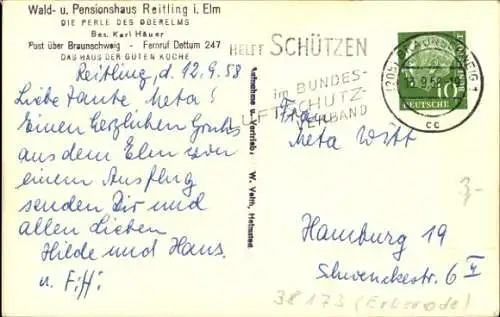 Wald- u. Pensionshaus Reitling i. Elm
DIE PERLE DES OBERELMS
Bes. Karl Häuer
Post über Braunschweig - Fernruf Dettum 247
DAS HAUS DER GUTEN KÜCHE
Reitling, d. 12.9.58
Liebe Tante Meta!
Einen herzlichen Gruß
aus dem Elm von
einem Ausflug
senden Dir und
allen Lieben
Hilde und Hans.
u. Fiffi
Aufnahme u. Vertrieb: W. Velth, Helmstedt
HELFT SCHÜTZEN
im BUNDES-
LUFTSCHUTZ-
VERBAND
(20b) BRAUNSCHWEIG 1
12.9.58
cc
10
DEUTSCHE
Frau
Meta Witt
Hamburg 19
Schwenckestr. 6 II
3,-
38173 (Erkerode)